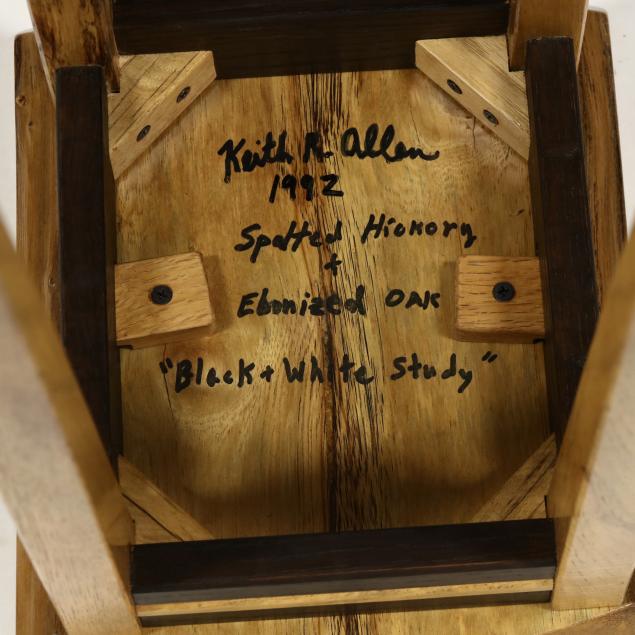 Keith R. Allen
1992
Spalted Hickory
+
Ebonized OAK
"Black + White Study"